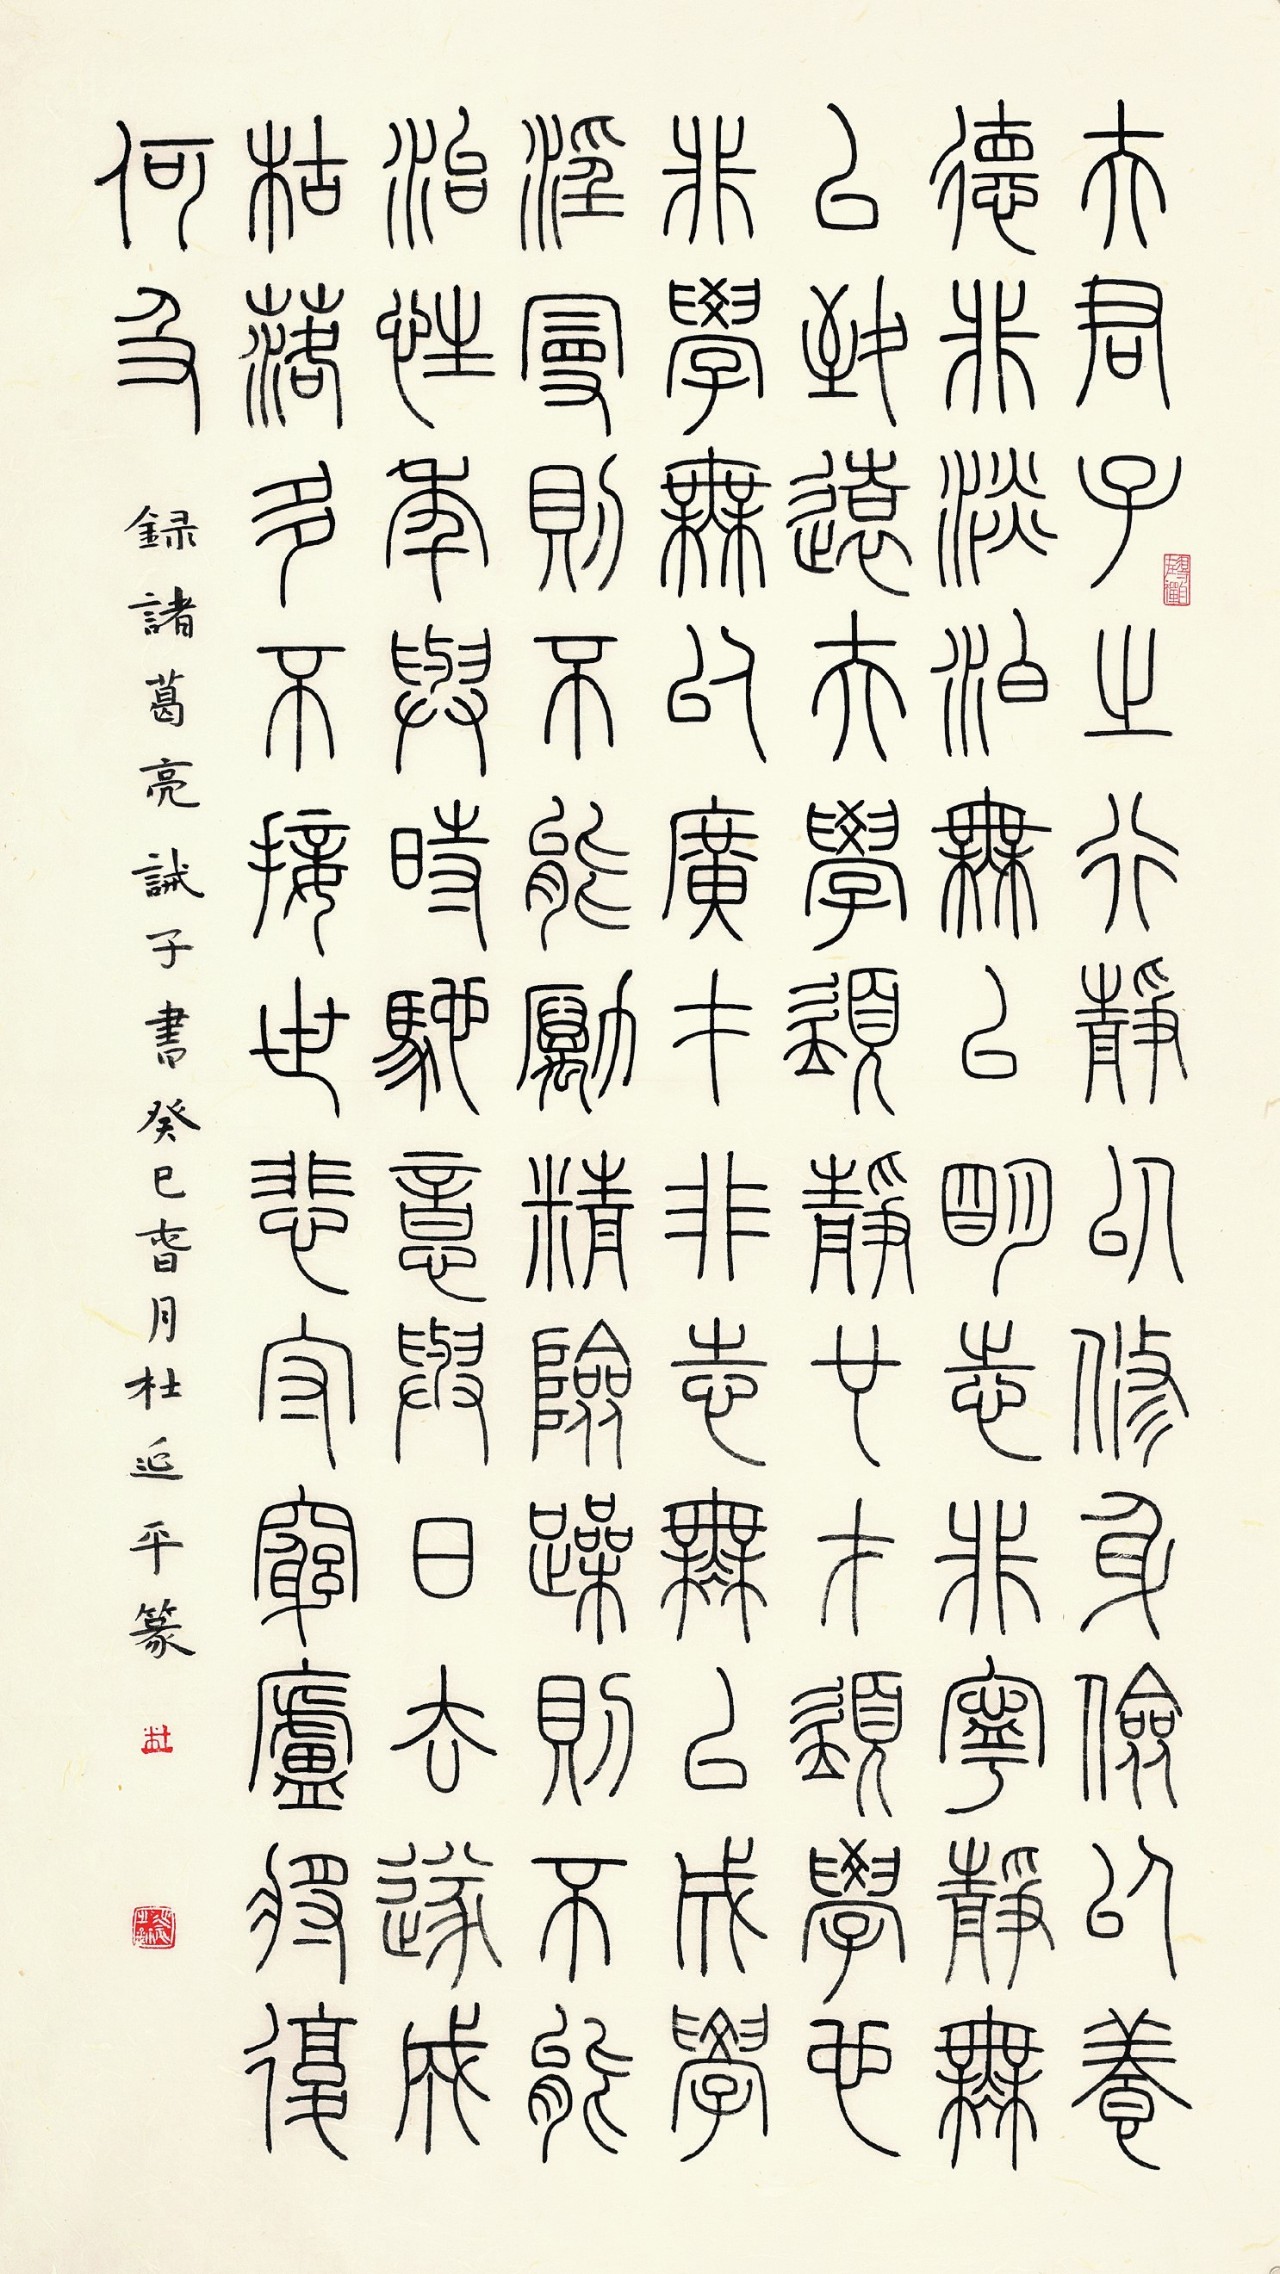 夫君子之行靜以修身儉以養
德非淡泊無以明志非寧靜無
以致遠夫學須靜也才須學也
非學無以廣才非志無以成學
淫曼則不能勵精險躁則不能
治性年與時馳意與日去遂成
枯落多不接世悲守窮廬將復
何及
録諸葛亮誡子書癸巳旾月杜延平篆
杜